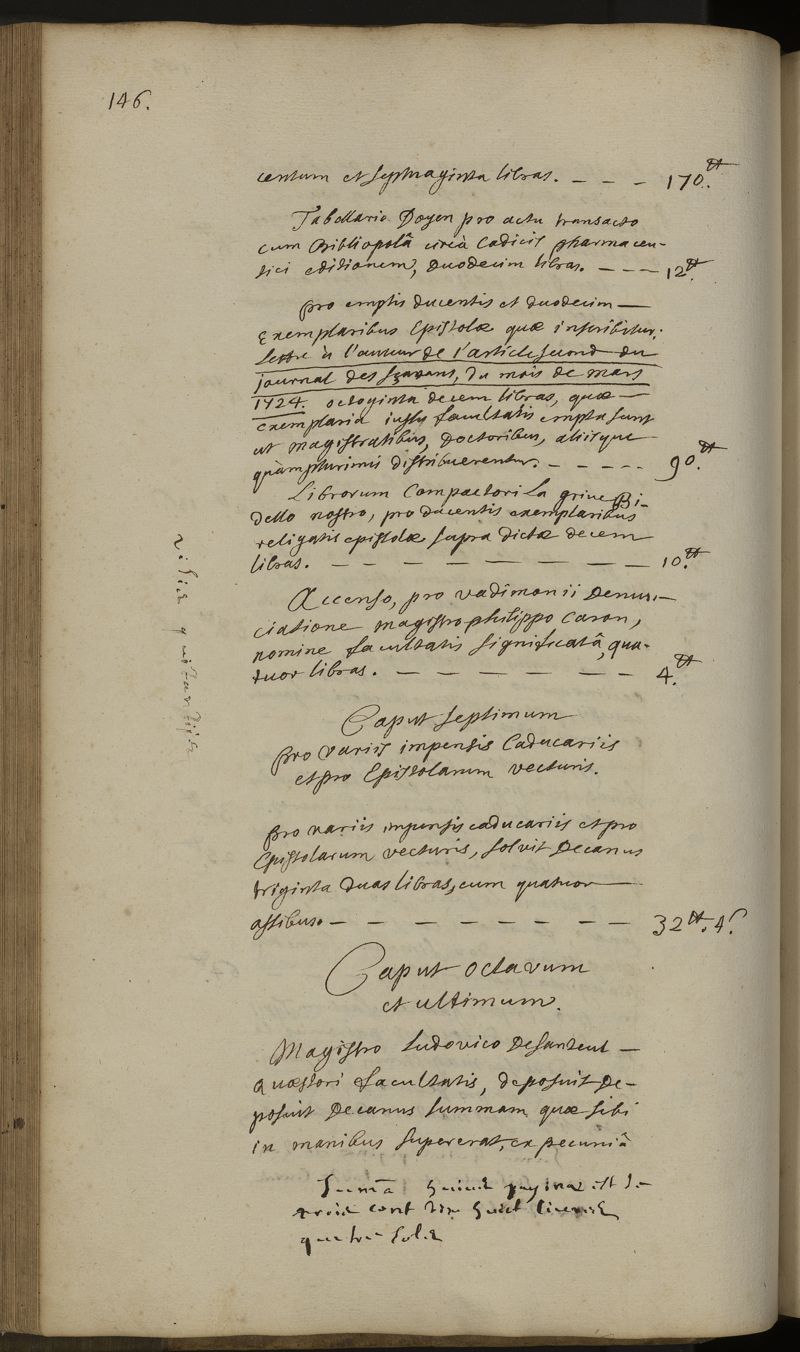 146.
centum et septuaginta libras. - - - 170.tt
Tabellario Doyen pro actu transacto
cum Bibliopolâ circà Codicis pharmaceu-
tici editionem, duodecim libras. - - - 12.tt
pro emptis ducentis et duodecim —
Exemplaribus Epistolæ quæ inscribitur,
Lettre à l'auteur de l'article second du
journal des sçavans, du mois de mars
1724. octoginta decem libras, quæ —
exemplaria iussu facultatis empta sunt
ut magistratibus, Doctoribus, aliisque
quàmplurimis distribuerentur. - - - - - 90.tt
Librorum Compactori La grive Bi-
dello nostro, pro ducentis exemplaribus
religatis epistolæ supra dictæ decem
libras. — — — — — — — — 10.tt
Accenso, pro vadimonii Denun-
ciatione magistro philippo Caron,
nomine facultatis significatâ, qua-
tuor libras. — — — — — — 4.tt
visis quitantiis
Caput septimum
pro variis impensis Caducariis
et pro Epistolarum vecturis.
pro variis impensis caducariis et pro
Epistolarum vecturis, solvit Decanus
triginta duas libras, cum quatuor —
assibus. — — — — — — — — 32.tt 4.s
Caput octavum
et ultimum.
Magistro Ludovico De Santeul —
quæstori facultatis, deposuit De-
posuit Decanus summam quæ sibi
in manibus supererat, ex pecuniâ
Summa huius paginæ est de
trois cent dix huict livres
quatre sols